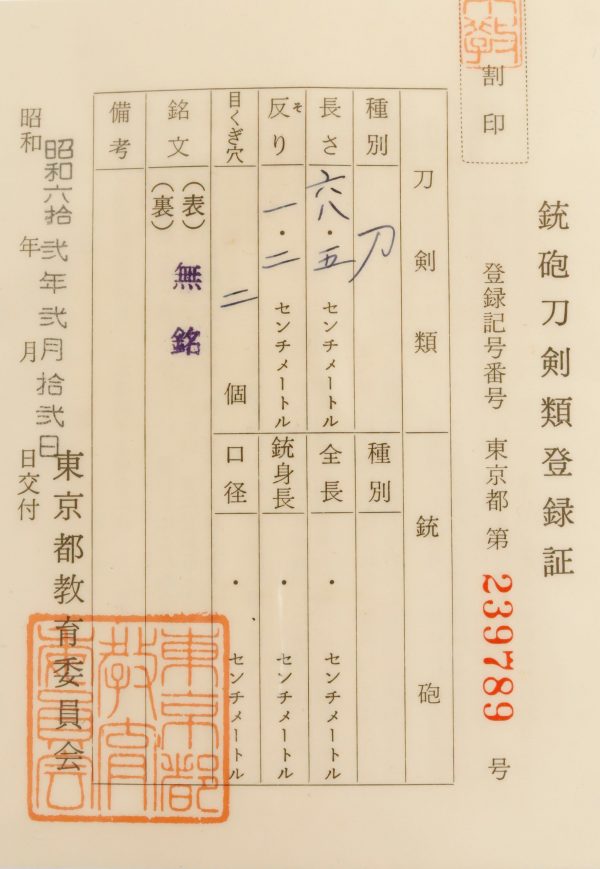 割印
銃砲刀剣類登録証
登録記号番号 東京都 第 239789 号
刀剣類 銃砲
種別 刀
長さ 六八・五 センチメートル
反り そ 一・二 センチメートル
目くぎ穴 二 個
種別
全長 ・ センチメートル
銃身長 ・ センチメートル
口径 ・ センチメートル
銘文 (表) 無銘
(裏)
備考
昭和 年 月 日交付
昭和六拾弐年弐月拾弐日
東京都教育委員会
東京都
教育
委員会